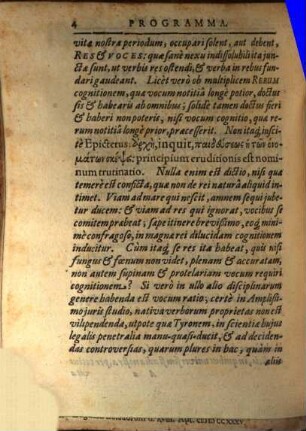 4 PROGRAMMA.
vitæ nostræ periodum, occupari solent, aut debent,
RES & VOCES: quæ sanè nexu indissolubili ita junctæ
sunt, ut verbis res ostendi, & verba in rebus fundari
gaudeant. Licet verò ob multiplicem RERUM
cognitionem, qua vocum notitiâ longè potior, doctus
sis & habearis ab omnibus; solidè tamen doctus fieri
& haberi non poteris, nisi vocum cognitio, qua rerum
notitiâ longè prior, præcesserit. Non itaq; inscitè
Epictetus: inquit,
principium eruditionis est nominum
trutinatio. Nulla enim est dictio, nisi qua
temerè est conficta, qua non de rei naturâ aliquid intimet.
Viam ad mare qui nescit, amnem sequi jubetur
ducem: & viam ad res qui ignorat, vocibus se
comitem præbeat; sæpe itinere brevissimo, eoq; minimè
confragoso, in magna rei dilucidam cognitionem
inducitur. Cùm itaq; se res ita habeat, quî nisi
fungus & fœnum non videt, plenam & accuratam,
non autem supinam & protelariam vocum requiri
cognitionem? Si verò in ullo alio disciplinarum
genere habenda est vocum ratio; certè in Amplissimo
juris studio, nativa verborum proprietas non est
vilipendenda, utpote qua Tyronem, in scientia hujus
legalis penetralia manu-quasi-ducit, & ad decidendas
controversias, quarum plures in hac, quàm in